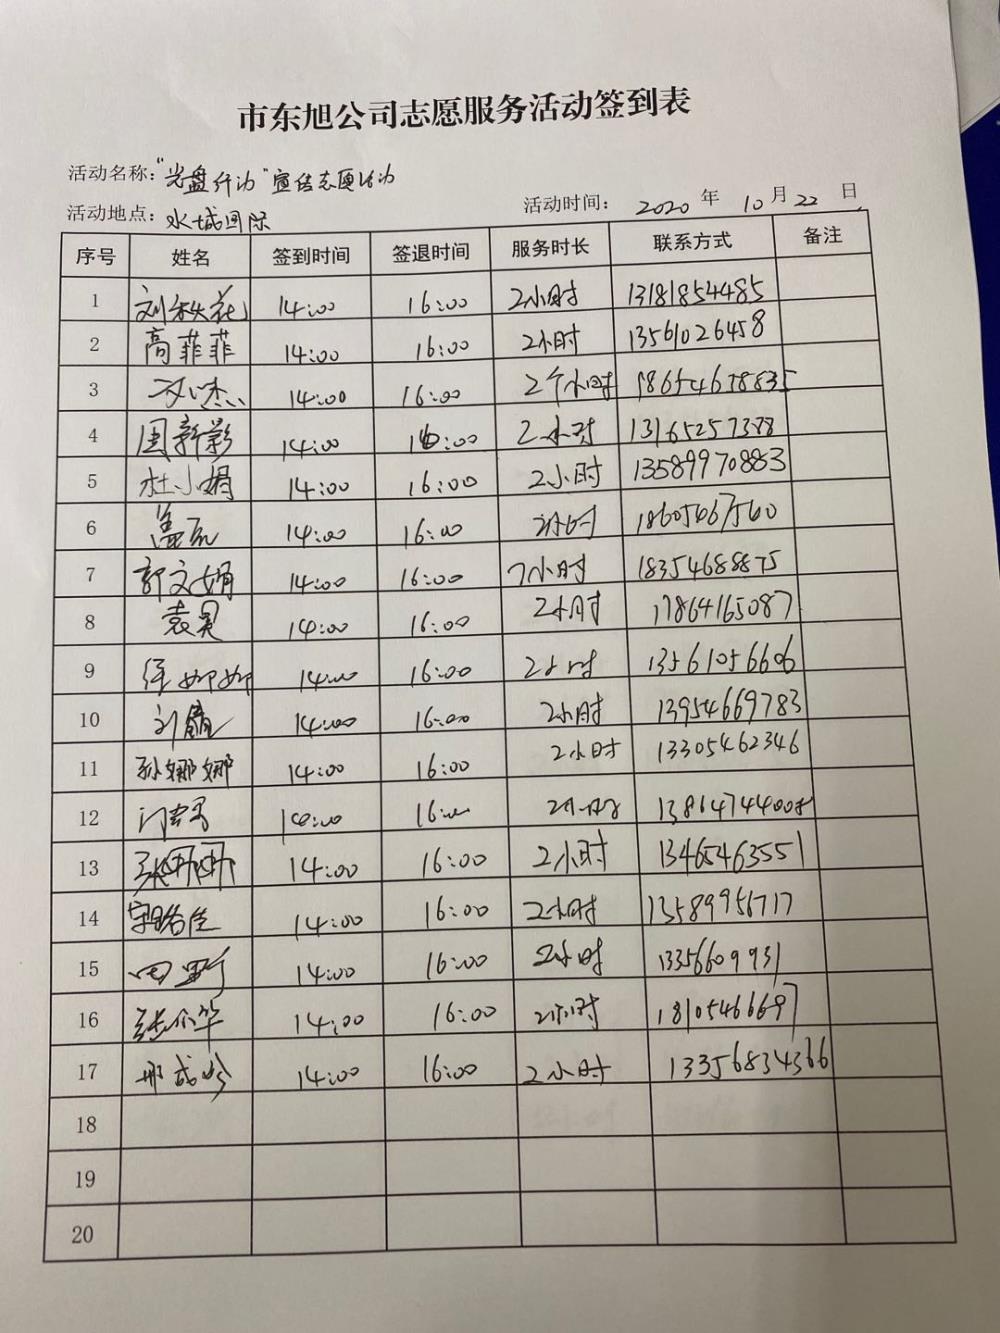 市东旭公司志愿服务活动签到表
活动名称："光盘行动"宣传志愿活动
活动地点：水城国际 活动时间： 2020 年 10 月 22 日
序号 姓名 签到时间 签退时间 服务时长 联系方式 备注
1 刘秋花 14:00 16:00 2小时 13181854485
2 高菲菲 14:00 16:00 2小时 13561026458
3 14:00 16:00 2个小时 18654678835
4 周新影 14:00 16:00 2小时 13165257378
5 杜小娟 14:00 16:00 2小时 13589970883
6 14:00 16:00 2小时 18605467560
7 郭文娟 14:00 16:00 2小时 18354688875
8 袁昊 14:00 16:00 2小时 17864165087
9 徐娜娜 14:00 16:00 2小时 13561056606
10 刘 14:00 16:00 2小时 13954669783
11 孙娜娜 14:00 16:00 2小时 13305462346
12 14:00 16:00 2小时
13 张 14:00 16:00 2小时 13465463551
14 14:00 16:00 2小时 13589956717
15 田野 14:00 16:00 2小时 13356609931
16 14:00 16:00 2小时 18105466697
17 邢成岭 14:00 16:00 2小时 13356834366
18
19
20